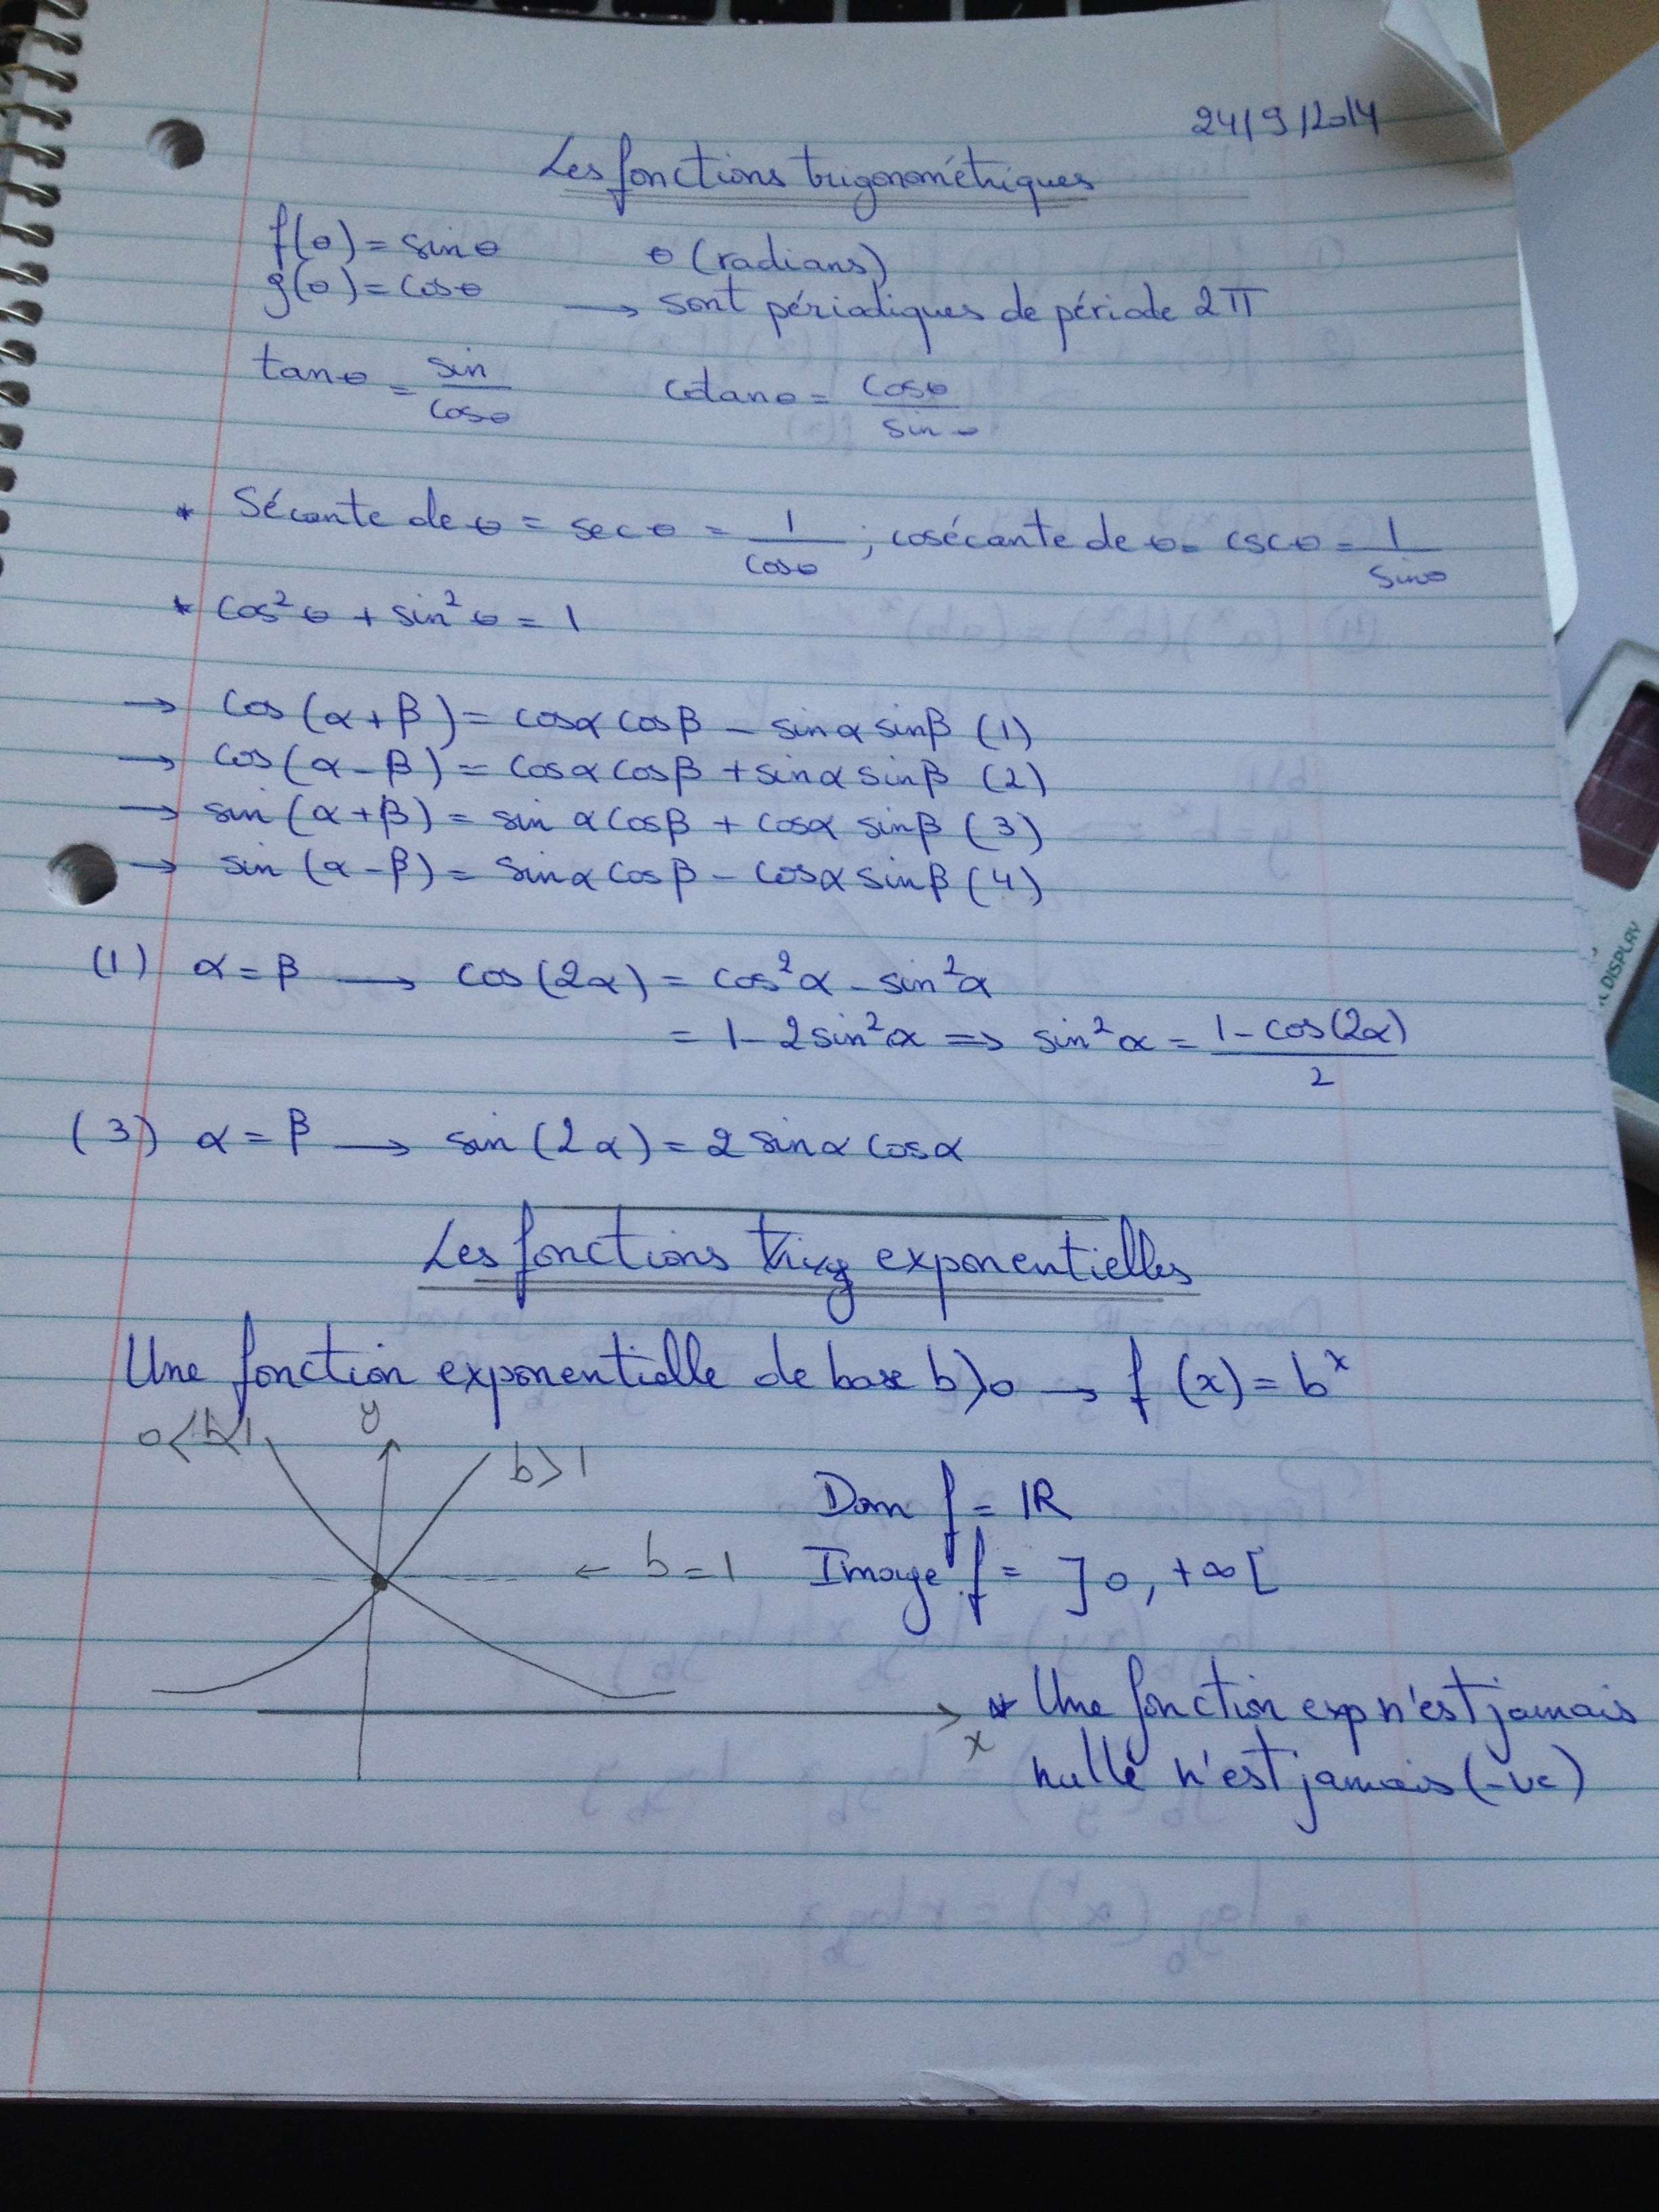 24/9/2014
Les fonctions trigonométriques
f(θ) = sin θ θ (radians)
g(θ) = cos θ → sont périodiques de période 2π
tan θ = sin / cos θ cotan θ = cos θ / sin θ
* Sécante de θ = sec θ = 1 / cos θ ; cosécante de θ = csc θ = 1 / sin θ
* cos² θ + sin² θ = 1
→ cos (α + β) = cos α cos β - sin α sin β (1)
→ cos (α - β) = cos α cos β + sin α sin β (2)
→ sin (α + β) = sin α cos β + cos α sin β (3)
→ sin (α - β) = sin α cos β - cos α sin β (4)
(1) α = β → cos (2α) = cos² α - sin² α
= 1 - 2 sin² α ⇒ sin² α = 1 - cos (2α) / 2
(3) α = β → sin (2α) = 2 sin α cos α
Les fonctions exponentielles
Une fonction exponentielle de base b > 0 → f (x) = bˣ
0 < b < 1 y b > 1
Dom f = ℝ
← b = 1 Image f = ] 0, +∞ [
x * Une fonction exp n'est jamais
nulle n'est jamais (-ve)
DISPLAY